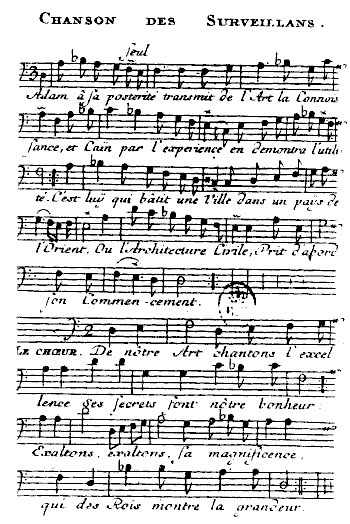 CHANSON DES SURVEILLANS.
seul
Adam à sa posterité transmit de l'Art la Connois
sance, et Caïn par l'experience en demontra l'utili
té. C'est luÿ qui bâtit une Ville dans un païs de
l'Orient. Ou l'Architecture Civile, Prit d'abord
son Commen-cement.
LE CHŒUR. De nôtre Art chantons l'excel
lence ses secrets font nôtre bonheur.
Exaltons, exaltons, sa magnificence,
qui des Rois montre la grandeur.